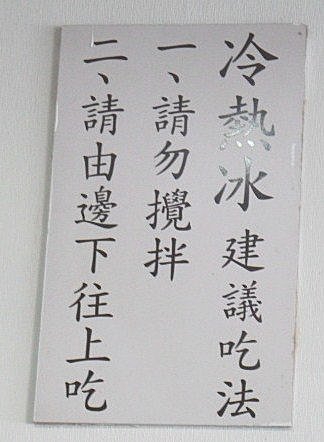 冷熱冰建議吃法
一、請勿攪拌
二、請由邊下往上吃